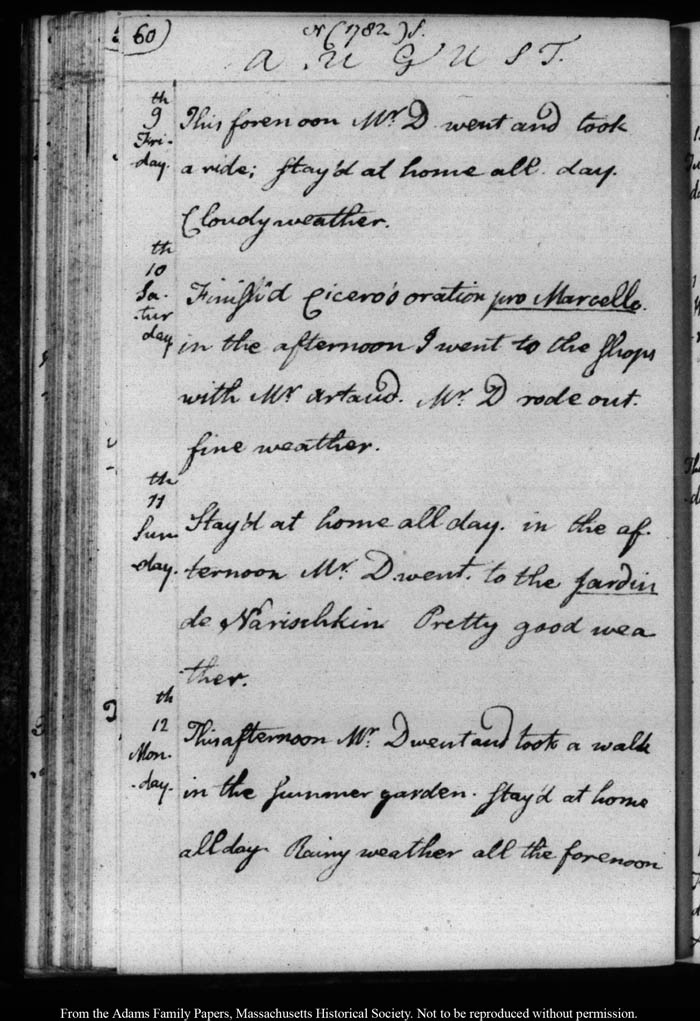 60) N (1782) S.
AUGUST.
th
9 This forenoon Mr. D went and took
Fri-
day. a ride; stay'd at home all day.
Cloudy weather.
th
10
Sa- Finish'd Cicero's oration pro Marcello.
tur
day in the afternoon I went to the shops
with Mr Artaud. Mr. D rode out.
fine weather.
th
11
Sun Stay'd at home all day. in the af-
-day. ternoon Mr. D went. to the jardin
de Narischkin Pretty good wea
ther.
th
12 This afternoon Mr. D went and took a walk
Mon-
-day. in the summer garden. stay'd at home
all day. Rainy weather all the forenoon
From the Adams Family Papers, Massachusetts Historical Society. Not to be reproduced without permission.